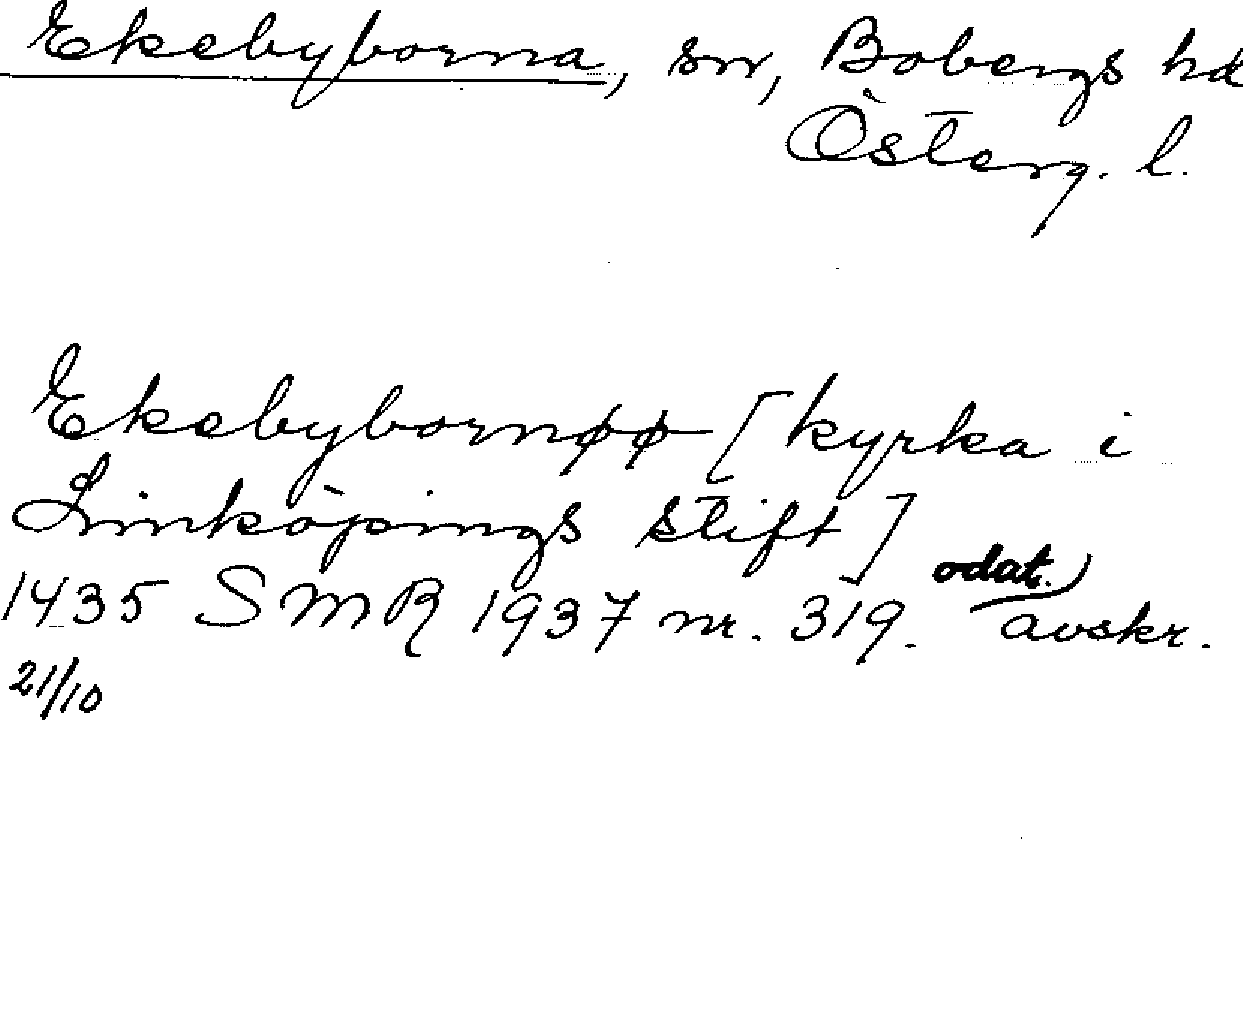 Ekebyborna, sn, Bobergs hd
Österg. l.
Ekebybornøø [kyrka i
Linköpings stift]
1435 SMR 1937 nr. 319. odat. avskr.
21/10